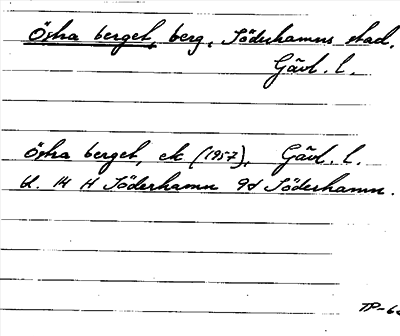 Östra berget, berg, Söderhamns stad.
Gävl. l.
Östra berget, ek (1957), Gävl. l.
bl. 14 H Söderhamn 9d Söderhamn.
TP-62